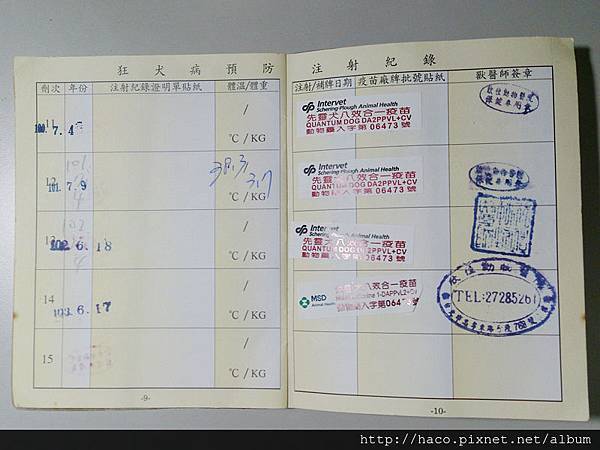 狂犬病預防
劑次 年份 注射紀錄證明單貼紙 體溫/體重
11
100. 7. 4
/
℃/KG
12
101
101. 7. 9
38.3
3.17
℃/KG
13
102
102. 6. 18
/
℃/KG
14
103. 6. 17
/
℃/KG
15
/
℃/KG
-9-
注射紀錄
注射/補牌日期 疫苗廠牌批號貼紙 獸醫師簽章
Intervet
Schering-Plough Animal Health
先靈犬八效合一疫苗
QUANTUM DOG DA2PPVL+CV
動物藥入字第 06473 號
Intervet
Schering-Plough Animal Health
先靈犬八效合一疫苗
QUANTUM DOG DA2PPVL+CV
動物藥入字第 06473 號
Intervet
Schering-Plough Animal Health
先靈犬八效合一疫苗
QUANTUM DOG DA2PPVL+CV
動物藥入字第 06473 號
MSD
Animal Health
犬八效合一疫苗
1-DAPPvL2+CV
動物藥入字第0647
欣佳動物醫院
TEL:27285261
-10-
http://haco.pixnet.net/album